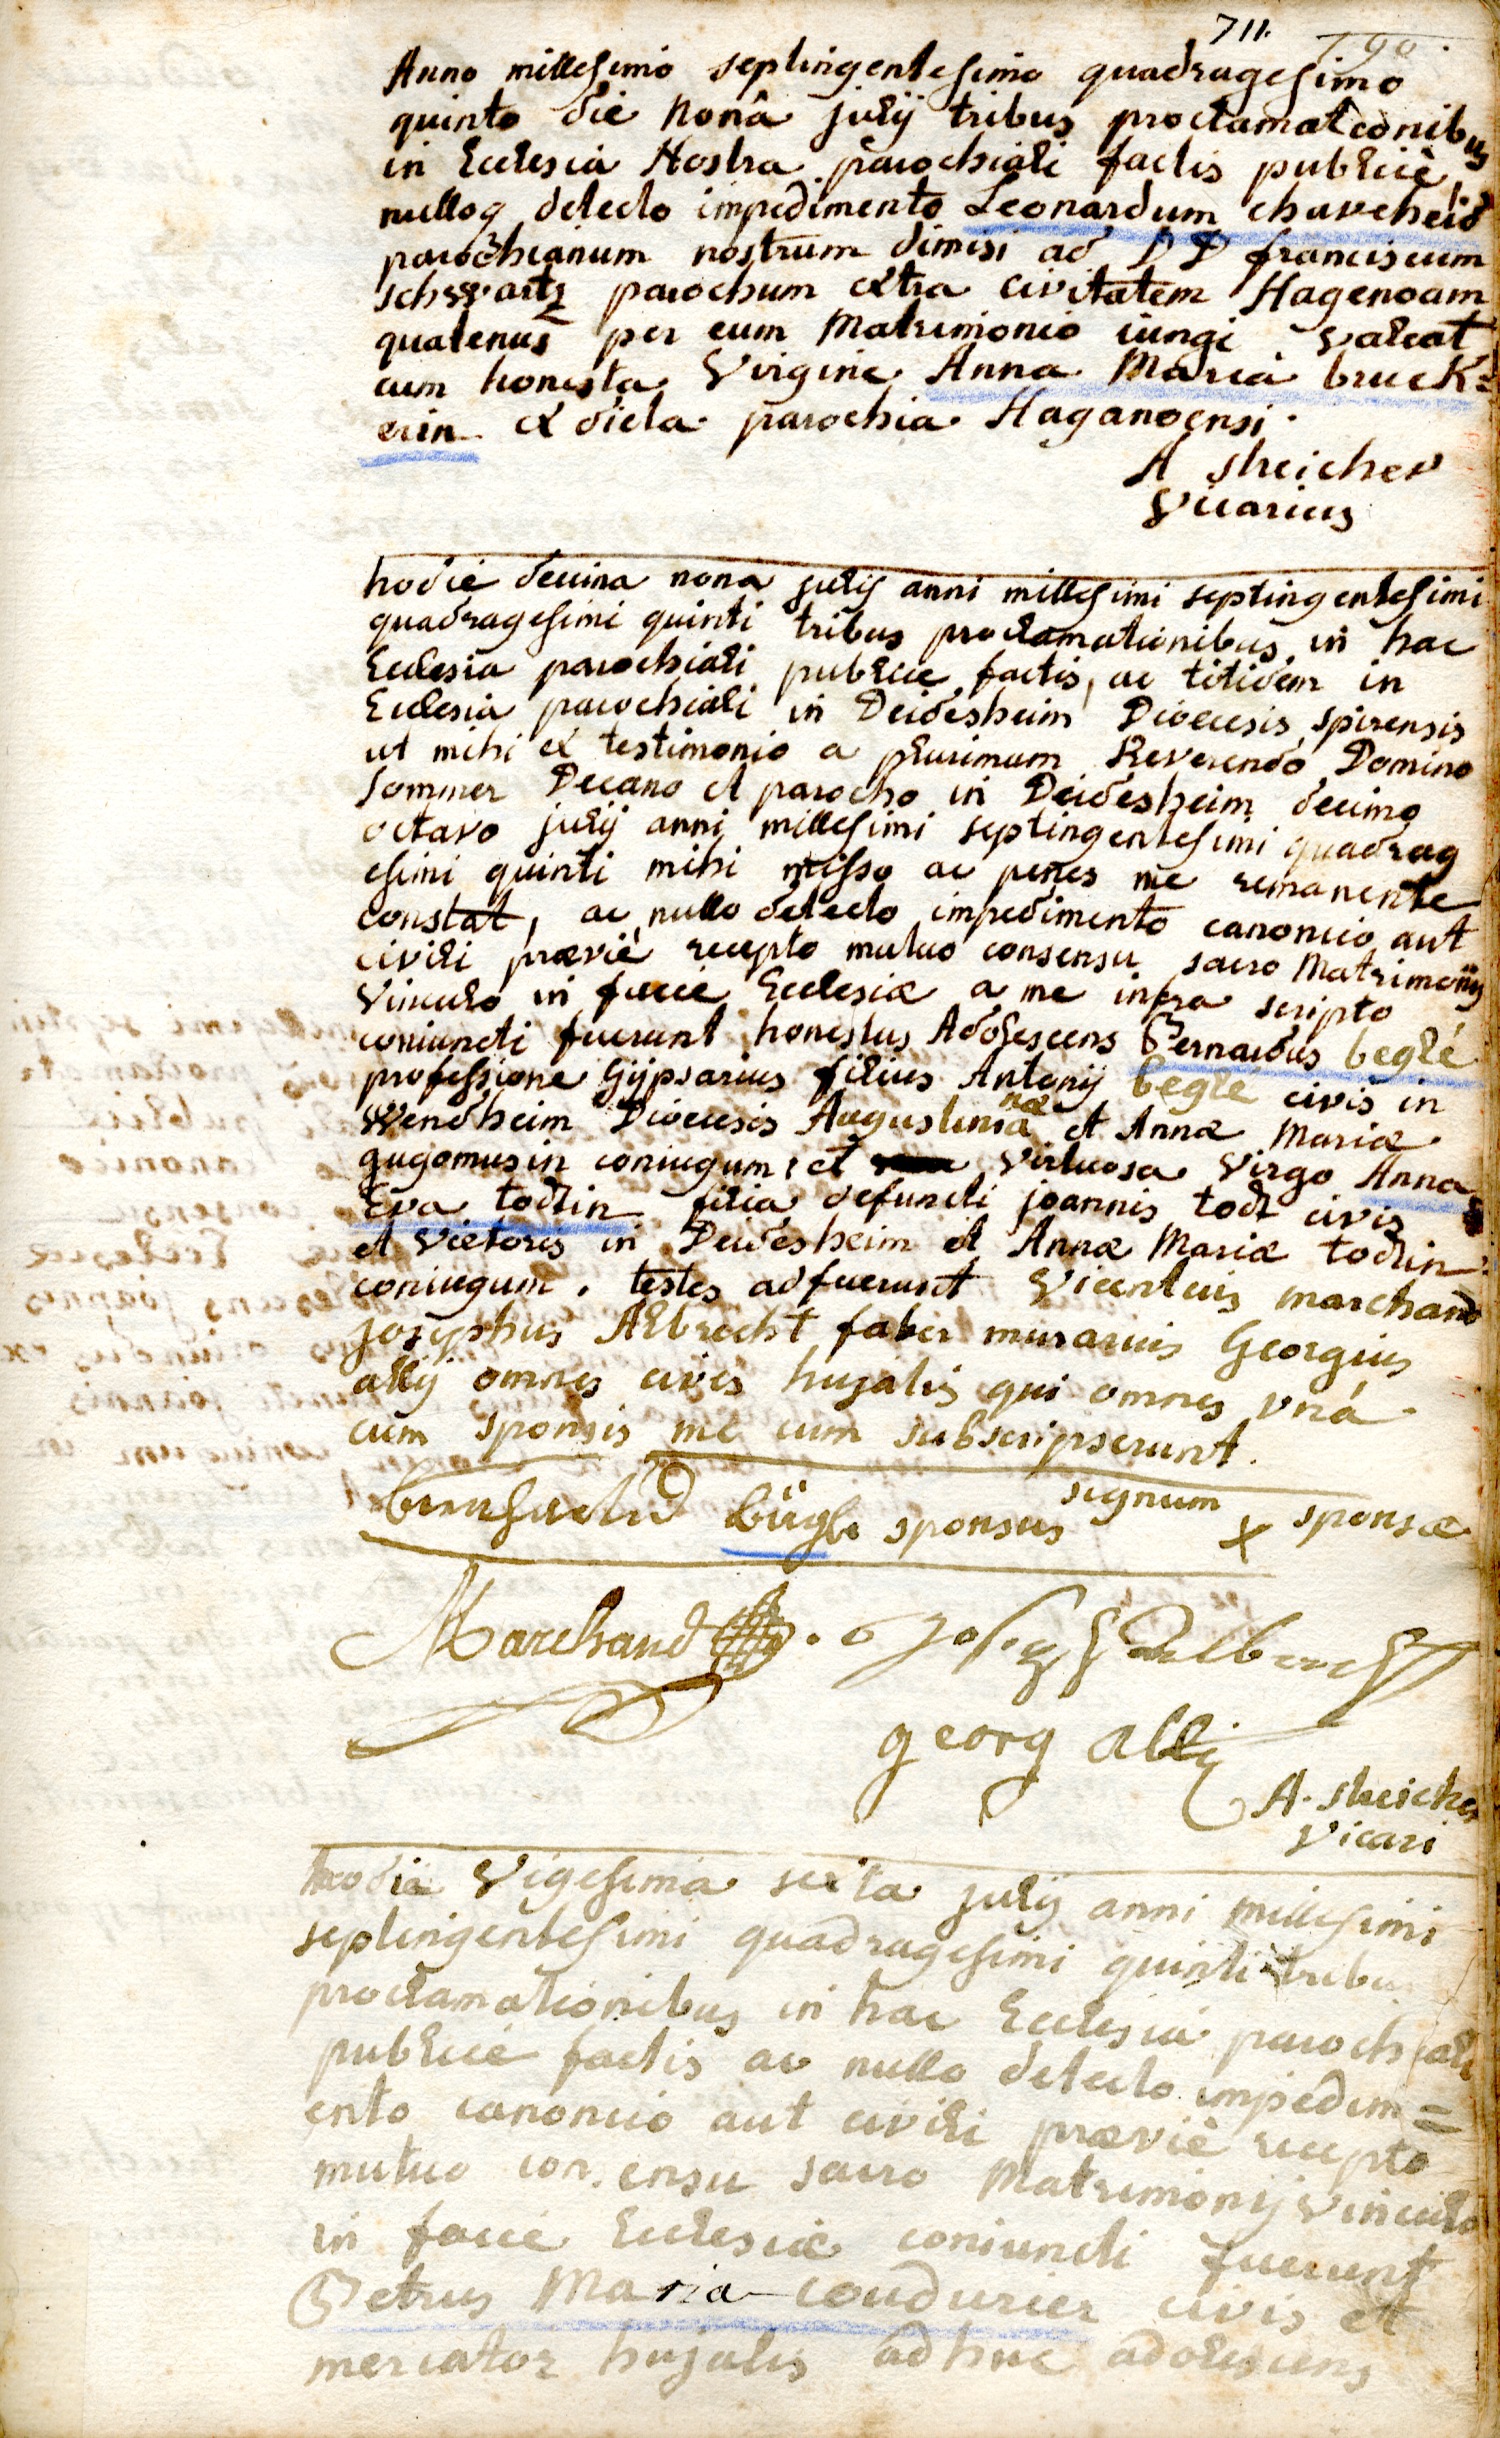 711.
790.
Anno millesimo septingentesimo quadragesimo
quinto die Nonâ julij tribus proclamationibus
in Ecclesia Nostra parochiali factis publicè
nulloq detecto impedimento Leonardum
parochianum nostrum dimisi ad DD franciscum
schwartz parochum extra civitatem Hagenoam
quatenus per eum Matrimonio iungi valeat
cum honesta Virgine Anna Maria bruck=
erin ex dicta parochia Haganoensi.
A streicher
Vicarius
hodie decima nona julij anni millesimi septingentesimi
quadragesimi quinti tribus proclamationibus in hac
Ecclesia parochiali publice factis, ac totidem in
Ecclesia parochiali in Deidesheim Dioecesis spirensis
ut mihi ex testimonio a plurimum Reverendo Domino
Sommer Decano et parocho in Deidesheim decimo
octavo julij anni millesimi septingentesimi quadrag
esimi quinti mihi misso ac penes me remanente
constat, ac nullo detecto impedimento canonico aut
civili prævie recepto mutuo consensu sacro Matrimonij
Vinculo in facie Ecclesiæ a me infra scripto
coniuncti fuerunt honestus Adolescens Bernardus beglé
professione Gijpsarius filius Antonij beglé civis in
Wendheim Dioecesis Augustinianæ et Annæ Mariæ
gugomusin coniugum; et virtuosa Virgo Anna
Eva todtin filia defuncti joannis todt civis
et Vietoris in Deidesheim et Annæ Mariæ todtin
coniugum. testes adfuerunt Vicentius marchand
josephus Albrecht faber murarius Georgius
alty omnes cives hujatis qui omnes vná
cum sponsis me cum subscripserunt.
bügle sponsus signum x sponsæ
Marchand
Joseph Albrecht
georg alty
A. streicher
Vicari
hodie Vigesima sexta julij anni millesimi
septingentesimi quadragesimi quinti tribus
proclamationibus in hac Ecclesia parochiali
publice factis ac nullo detecto impedim=
ento canonico aut civili prævie recepto
mutuo consensu sacro Matrimonij Vinculo
in facie Ecclesiæ coniuncti fuerunt
Petrus Maria coudurier civis et
mercator hujatis ad huc adolescens